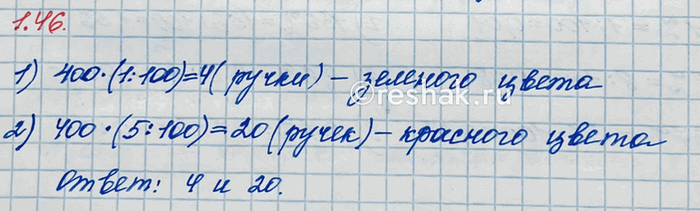 1.46.
1) 400·(1:100)=4(ручки) – зеленого цвета
©reshak.ru
2) 400·(5:100)=20(ручек) – красного цвета
Ответ: 4 и 20.